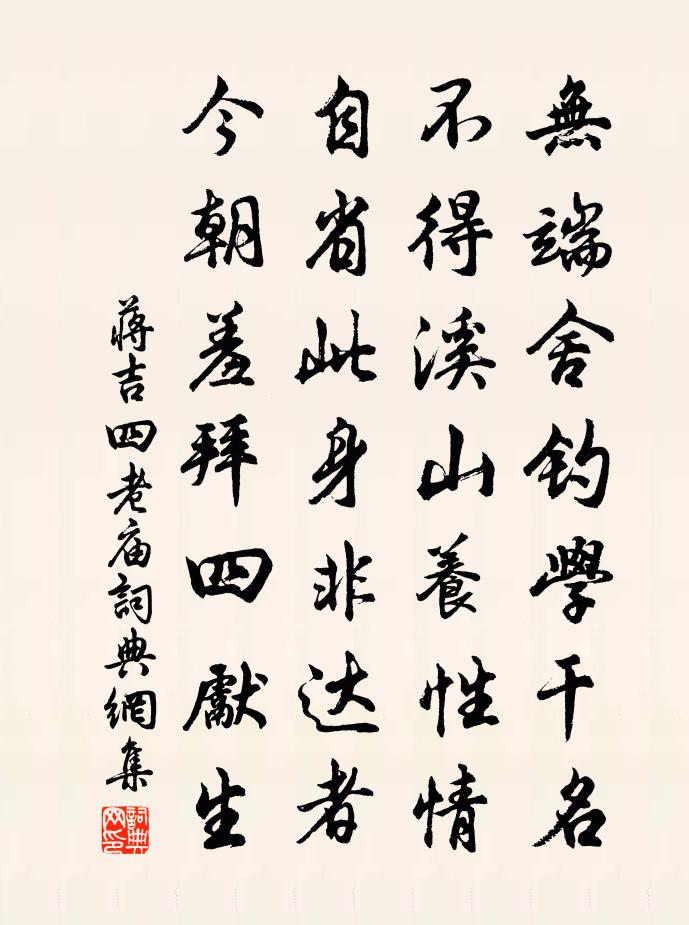 無端舍钓學干名
不得溪山養性情
自省此身非达者
今朝羞拜四獻生
蒋吉四老庙詞典網集
詞典网印